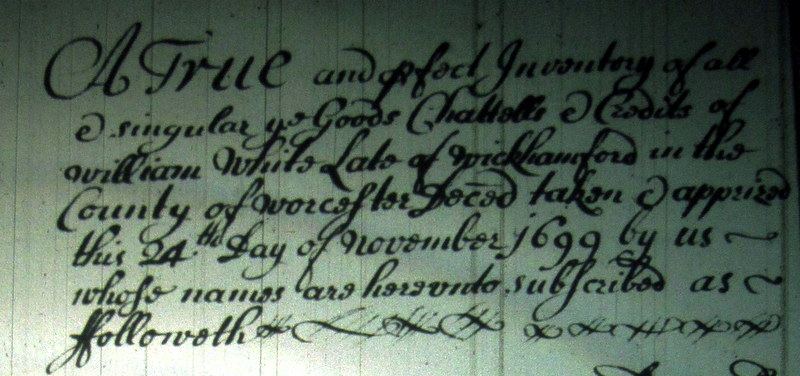 A True and pfect Inventory of all
& singular ye Goods Chattells & Credits of
William White Late of Wickhamford in the
County of Worcester Deced taken & apprized
this 24th Day of November 1699 by us
whose names are herevnto subscribed as
ffolloweth